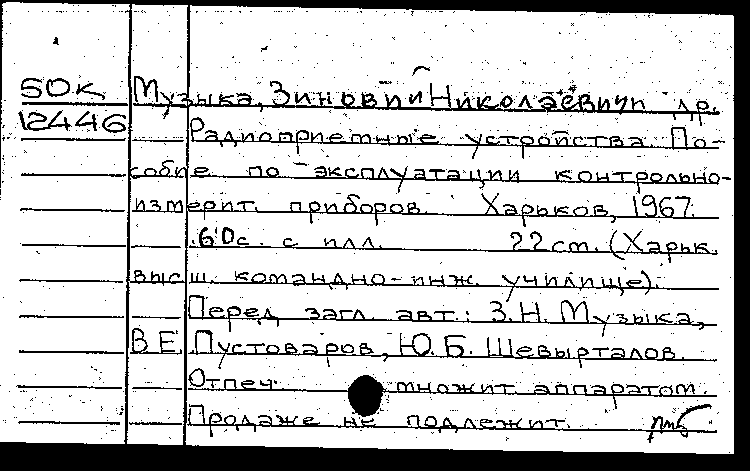 50К Музыка, Зиновий Николаевич и др.
12446 Радиоприемные устройства. По-
собие по эксплуатации контрольно-
измерит. приборов. Харьков, 1967.
60с. с илл. 22см. (Харьк.
высш. командно-инж. училище).
Перед загл. авт.: З.Н. Музыка,
В.Е. Пустоваров, Ю.Б. Шевырталов.
Отпеч. множит. аппаратом.
Продаже не подлежит.